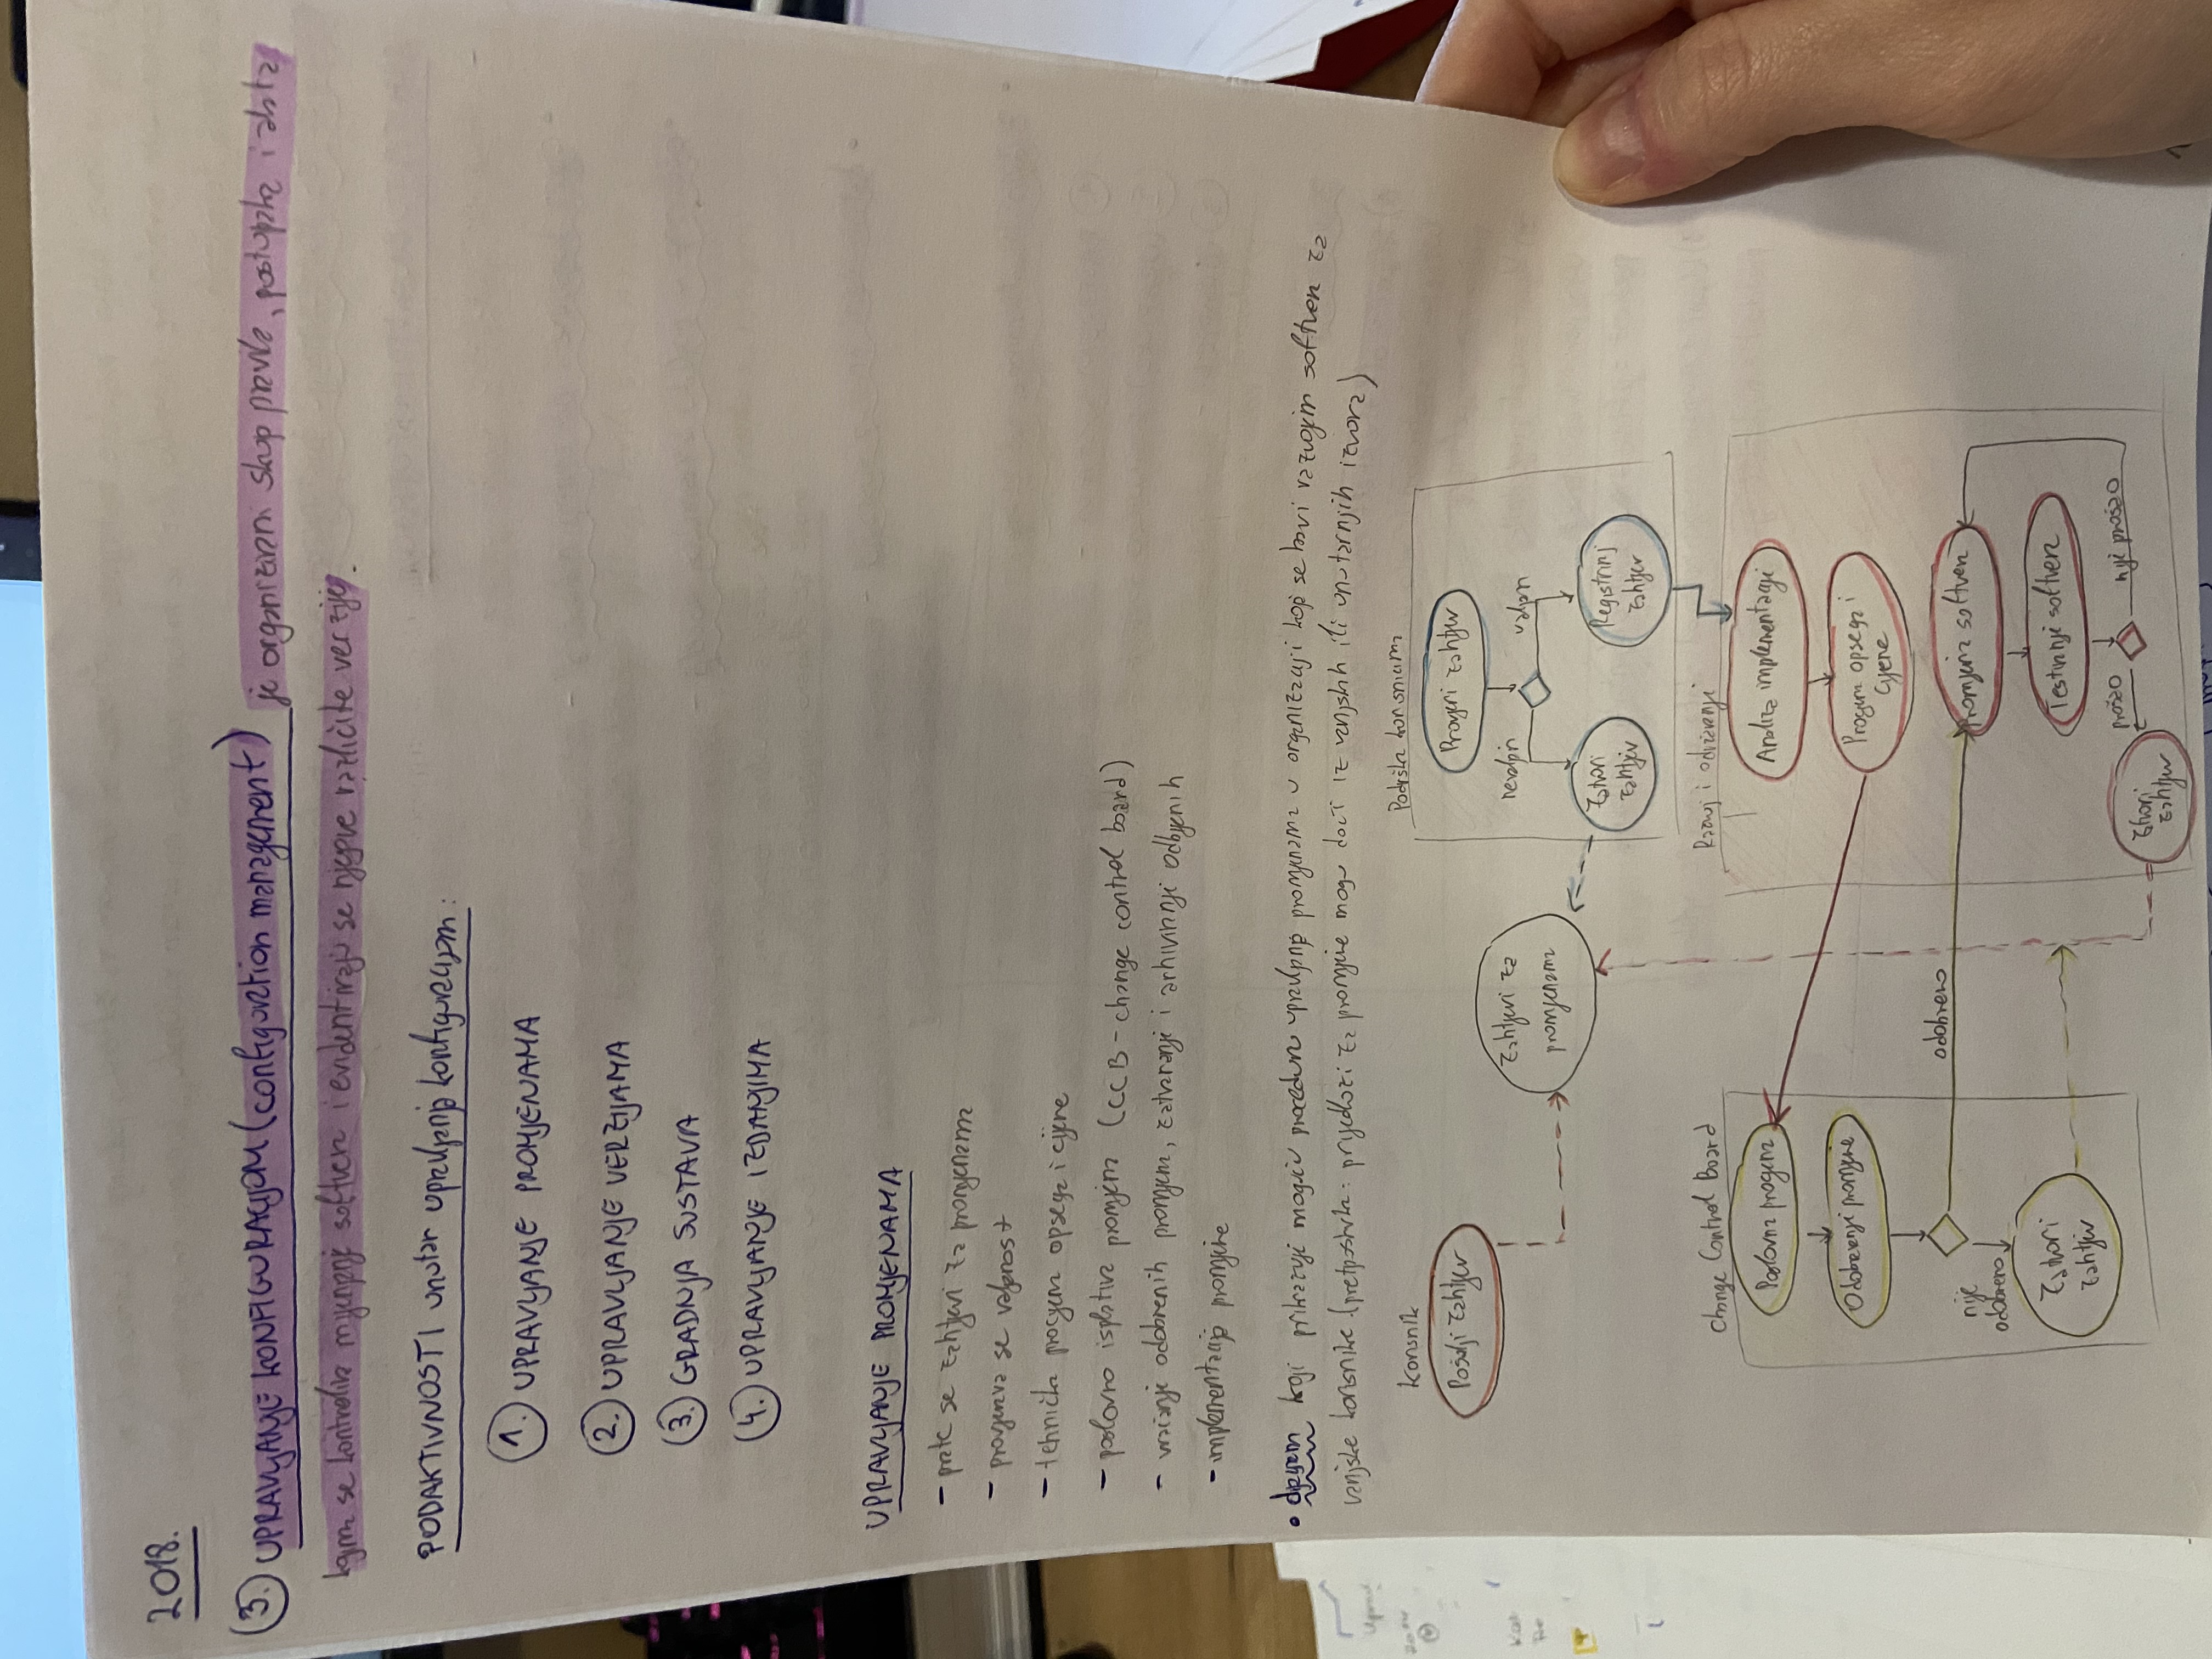 2018.
3. UPRAVLJANJE KONFIGURACIJOM (configuration management) je organizirani skup pravila, postupaka i alata
kojima se kontrolira mijenjanje softvera i evidentiraju se njegove različite verzije.
PODAKTIVNOSTI unutar upravljanja konfiguracijom:
1. UPRAVLJANJE PROMJENAMA
2. UPRAVLJANJE VERZIJAMA
3. GRADNJA SUSTAVA
4. UPRAVLJANJE IZDANJIMA
UPRAVLJANJE PROMJENAMA
- prate se zahtjevi za promjenama
- provjerava se valjanost
- tehnička procjena opsega i cijene
- poslovno isplativa promjena (CCB - change control board)
- vraćanje odobrenih promjena, zatvaranje i arhiviranje odbijenih
- implementacija promjene
• dijagram koji prikazuje moguću proceduru upravljanja promjenama u organizaciji koja se bavi razvojem softvera za
vanjske korisnike (pretpostavka: prijedlozi za promjene mogu doći iz vanjskih ili unutarnjih izvora)
Korisnik
Pošalji zahtjev
Zahtjevi za
promjenama
Podrška korisnicima
Provjeri zahtjev
nevaljan
valjan
Zatvori
zahtjev
Registriraj
zahtjev
Change Control Board
Poslovna procjena
Odobravanje promjene
nije
odobreno
odobreno
Zatvori
zahtjev
Razvoj i održavanje
Analiza implementacije
Procjena opsega i
cijene
Promjena softvera
Testiranje softvera
prošao
nije prošao
Zatvori
zahtjev